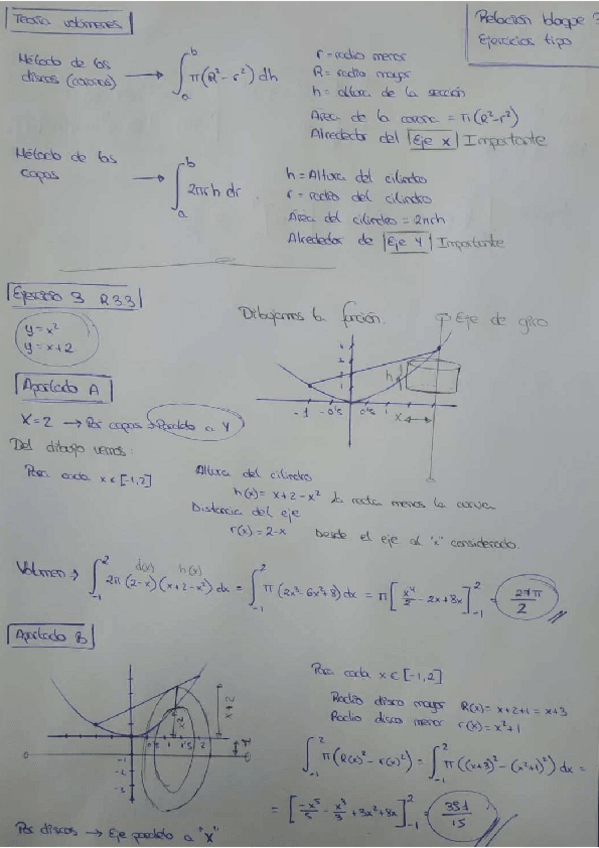 Teoría volúmenes
Relación bloque 3
Ejercicios tipo
Método de los
discos (coronas) → ∫_a^b π(R²-r²) dh
r = radio menor
R = radio mayor
h = altura de la sección
Área de la corona = π(R²-r²)
Alrededor del Eje X Importante
Método de las
capas → ∫_a^b 2πrh dr
h = Altura del cilindro
r = radio del cilindro
Área del cilindro = 2πrh
Alrededor de Eje Y Importante
Ejercicio 3 R33
y = x²
y = x+2
Dibujamos la función.
Eje de giro
Apartado A
X=2 → Por capas → Paralelo a Y
Del dibujo vemos:
Para cada x ∈ [-1,2]
Altura del cilindro
h(x) = x+2-x² la recta menos la curva
Distancia del eje
r(x) = 2-x Desde el eje al "x" considerado.
h
x
-1 -0'5 0'5 1
d(x) h(x)
Volumen → ∫_{-1}^2 2π(2-x)(x+2-x²)dx = ∫_{-1}^2 π(2x³-6x²+8)dx = π[x⁴/2 - 2x+8x]_{-1}^2 = 27π/2
Apartado B
Para cada x ∈ [-1,2]
Radio disco mayor R(x) = x+2+1 = x+3
Radio disco menor r(x) = x²+1
x+2
x²
0'5 1 1'5 2
-1
-2
-3
∫_{-1}^2 π(R(x)²-r(x)²) = ∫_{-1}^2 π((x+3)²-(x²+1)²)dx =
= [-x⁵/5 - x³/3 + 3x²+8x]_{-1}^2 = 351/15
Por discos → Eje paralelo a "X"